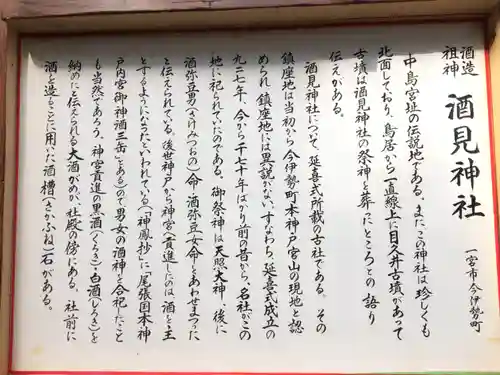 酒造祖神 酒見神社
一宮市今伊勢町
中島宮址の伝説地である。またこの神社は珍しくも
北面しており、鳥居から一直線上に目久井古墳があって
古墳は酒見神社の祭神を葬ったところとの語り
伝えがある。
酒見神社について、延喜式所載の古社である。その
鎮座地は当初から今伊勢町本神戸宮山の現地と認
められ、鎮座地には異説がない。すなわち、延喜式成立の
九二七年、今から一千七十年ばかり前の昔から、名社がこの
地に祀られていたのである。御祭神は天照大神、後に
酒弥豆男(さけみつおの)命、酒弥豆女命とあわせまつった
と伝えられている。後世神戸から神宮へ貢進したのは酒を主
とするようになったといわれている(「神鳳抄」に尾張国本神
戸内宮御神酒三缶とある)ので男女の酒神を合祀したこと
も当然であろう。神宮貢進の黒酒(くろき)・白酒(しろき)を
納めたと伝えられる大酒がめが、社殿の傍にある。社前に
酒を造ることに用いた酒槽(さかふね)石がある。